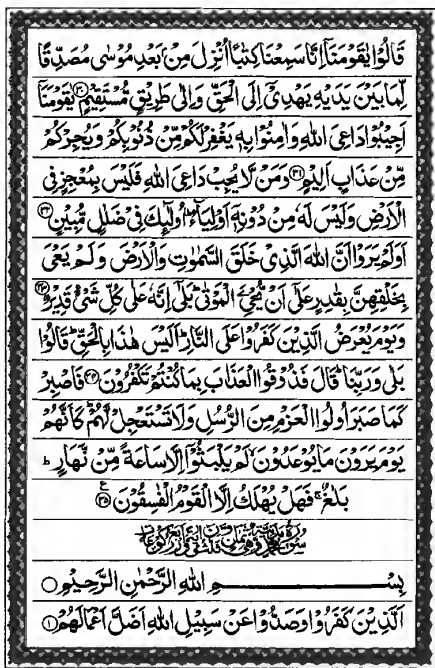 قَالُوْا يٰقَوْمَنَاۤ اِنَّا سَمِعْنَا كِتٰبًا اُنْزِلَ مِنْۢ بَعْدِ مُوْسٰى مُصَدِّقًا
لِّمَا بَيْنَ يَدَيْهِ يَهْدِيْۤ اِلَى الْحَقِّ وَاِلٰى طَرِيْقٍ مُّسْتَقِيْمٍ ﴿۳۰﴾ يٰقَوْمَنَاۤ
اَجِيْبُوْا دَاعِيَ اللّٰهِ وَاٰمِنُوْا بِهٖ يَغْفِرْ لَكُمْ مِّنْ ذُنُوْبِكُمْ وَيُجِرْكُمْ
مِّنْ عَذَابٍ اَلِيْمٍ ﴿۳۱﴾ وَمَنْ لَّا يُجِبْ دَاعِيَ اللّٰهِ فَلَيْسَ بِمُعْجِزٍ فِي
الْاَرْضِ وَلَيْسَ لَهٗ مِنْ دُوْنِهٖۤ اَوْلِيَآءُ ؕ اُولٰٓئِكَ فِيْ ضَلٰلٍ مُّبِيْنٍ ﴿۳۲﴾
اَوَلَمْ يَرَوْا اَنَّ اللّٰهَ الَّذِيْ خَلَقَ السَّمٰوٰتِ وَالْاَرْضَ وَلَمْ يَعْيَ
بِخَلْقِهِنَّ بِقٰدِرٍ عَلٰۤى اَنْ يُّحْيِۦَ الْمَوْتٰى ؕ بَلٰۤى اِنَّهٗ عَلٰى كُلِّ شَيْءٍ قَدِيْرٌ ﴿۳۳﴾
وَيَوْمَ يُعْرَضُ الَّذِيْنَ كَفَرُوْا عَلَى النَّارِ ؕ اَلَيْسَ هٰذَا بِالْحَقِّ ؕ قَالُوْا
بَلٰى وَرَبِّنَا ؕ قَالَ فَذُوْقُوا الْعَذَابَ بِمَا كُنْتُمْ تَكْفُرُوْنَ ﴿۳۴﴾ فَاصْبِرْ
كَمَا صَبَرَ اُولُوا الْعَزْمِ مِنَ الرُّسُلِ وَلَا تَسْتَعْجِلْ لَّهُمْ ؕ كَاَنَّهُمْ
يَوْمَ يَرَوْنَ مَا يُوْعَدُوْنَ ۙ لَمْ يَلْبَثُوْۤا اِلَّا سَاعَةً مِّنْ نَّهَارٍ ؕ
بَلٰغٌ ۚ فَهَلْ يُهْلَكُ اِلَّا الْقَوْمُ الْفٰسِقُوْنَ ﴿۳۵﴾ ع
سورة محمد
بِسْمِ اللّٰهِ الرَّحْمٰنِ الرَّحِيْمِ ○
اَلَّذِيْنَ كَفَرُوْا وَصَدُّوْا عَنْ سَبِيْلِ اللّٰهِ اَضَلَّ اَعْمَالَهُمْ ﴿۱﴾